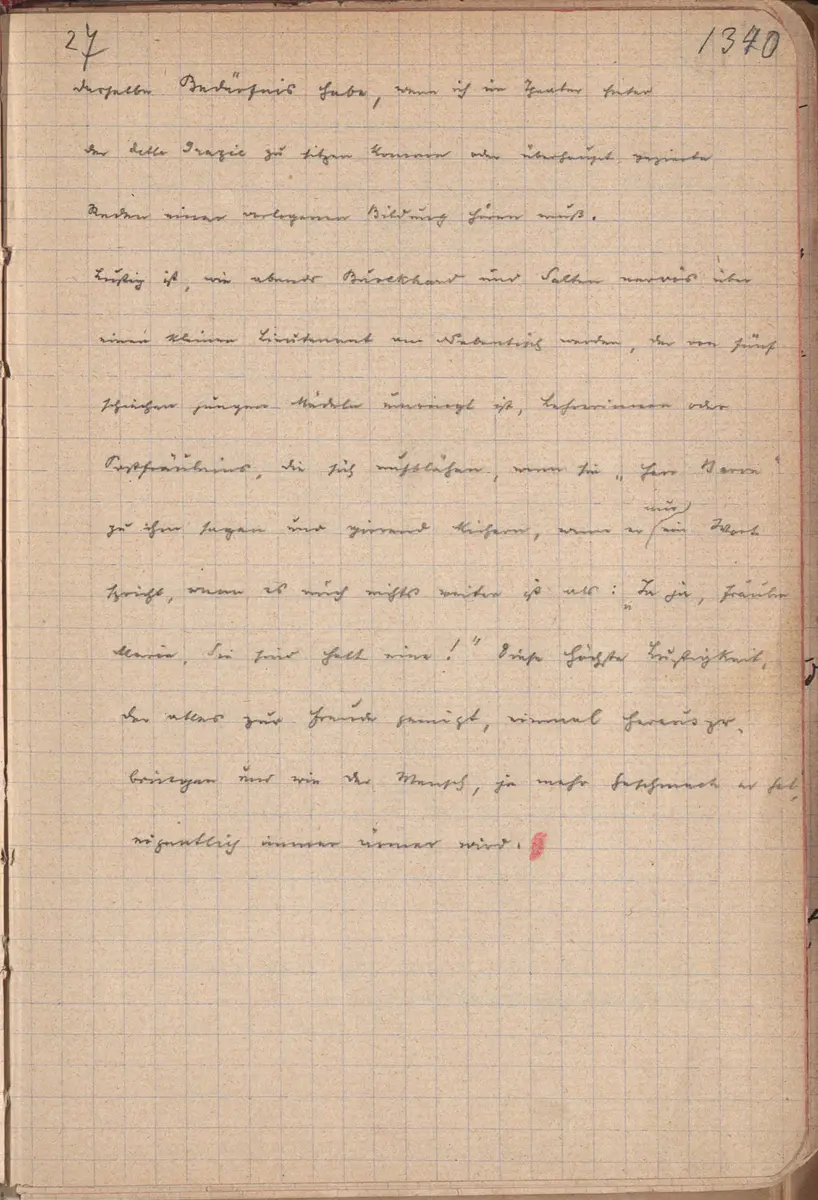 27
1340
dasselbe Bedürfnis habe, wenn ich im Theater hinter
der delle Grazie zu sitzen komme oder überhaupt gezierte
Reden einer verlogenen Bildung hören muß.
Lustig ist, wie abends Burckhard und Salten nervös über
einen kleinen Lieutenant am Nebentisch werden, der von fünf
schiechen jungen Mädeln umringt ist, Lehrerinnen oder
Postfräuleins, die sich aufblähen, wenn sie „Herr Baron“
zu ihm sagen und girrend kichern, wenn er nur ein Wort
spricht, wenn es auch nichts weiter ist als: „Ja ja, Fräulein
Marie, Sie sind halt eine!“ Diese höchste Lustigkeit,
der alles zur Freude genügt, einmal herauszu-
bringen und wie der Mensch, je mehr Geschmack er hat,
eigentlich immer ärmer wird.